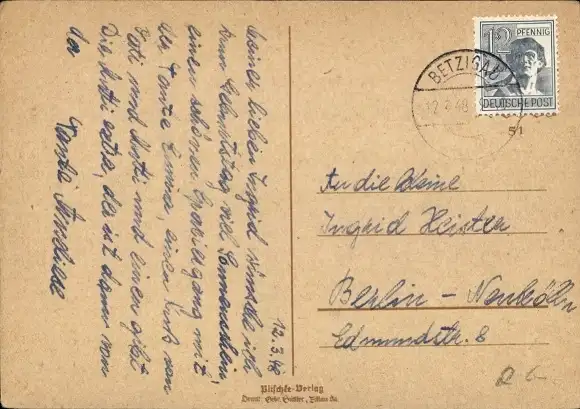 12.3.48
Meiner lieben Ingrid wünsche ich
zum Geburtstag viel Sonnenschein,
einen schönen Spaziergang mit
der Tante Emma, einen Kuß von
Vati und Mutti und einen gibt
Die Mutti extra, der ist dann von
der Tante
12 PFENNIG
DEUTSCHE POST
BETZIGAU
12.3.48
51
An die kleine
Ingrid Heister
Berlin - Neukölln
Edmundstr. 8
Plischke-Verlag